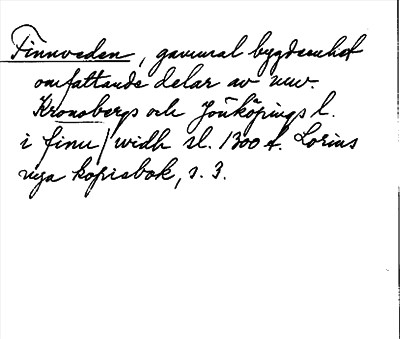 Finnveden, gammal bygdeenhet
omfattande delar av nuv.
Kronobergs och Jönköpings l.
i finu/widh sl. 1300 t.
nya kopiebok, s. 3.